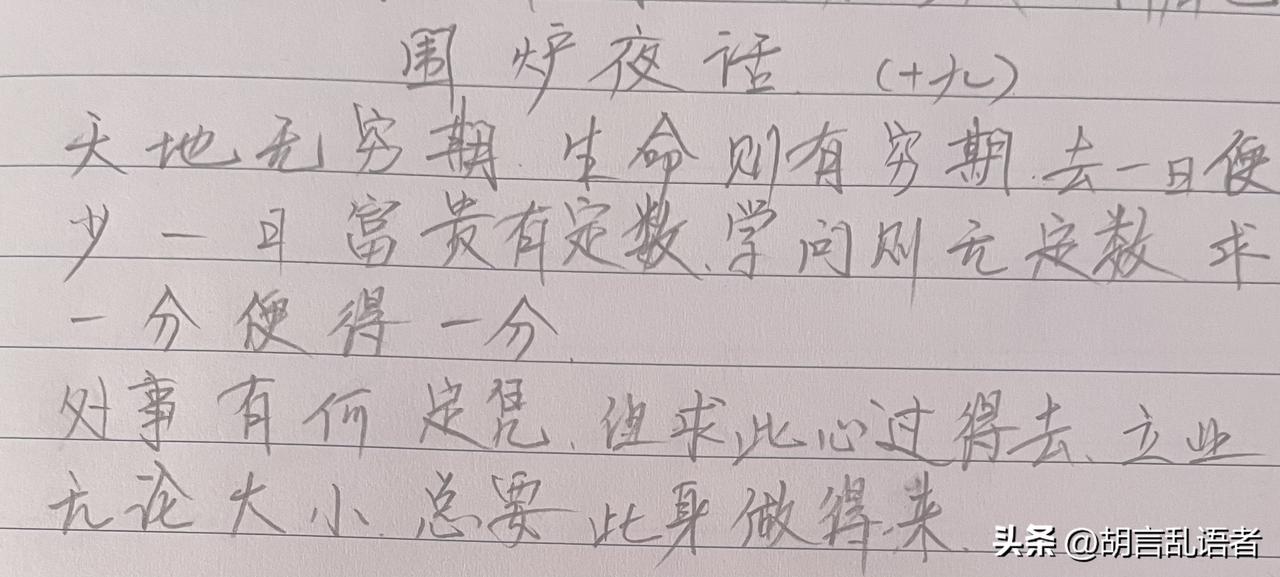 围炉夜话 (十九)
天地无穷期.生命则有穷期.去一日便
少一日富贵有定数.学问则无定数 求
一分便得一分.
处事有何定凭.但求此心过得去.立业
无论大小.总要此身做得来.
头条 @胡言乱语者